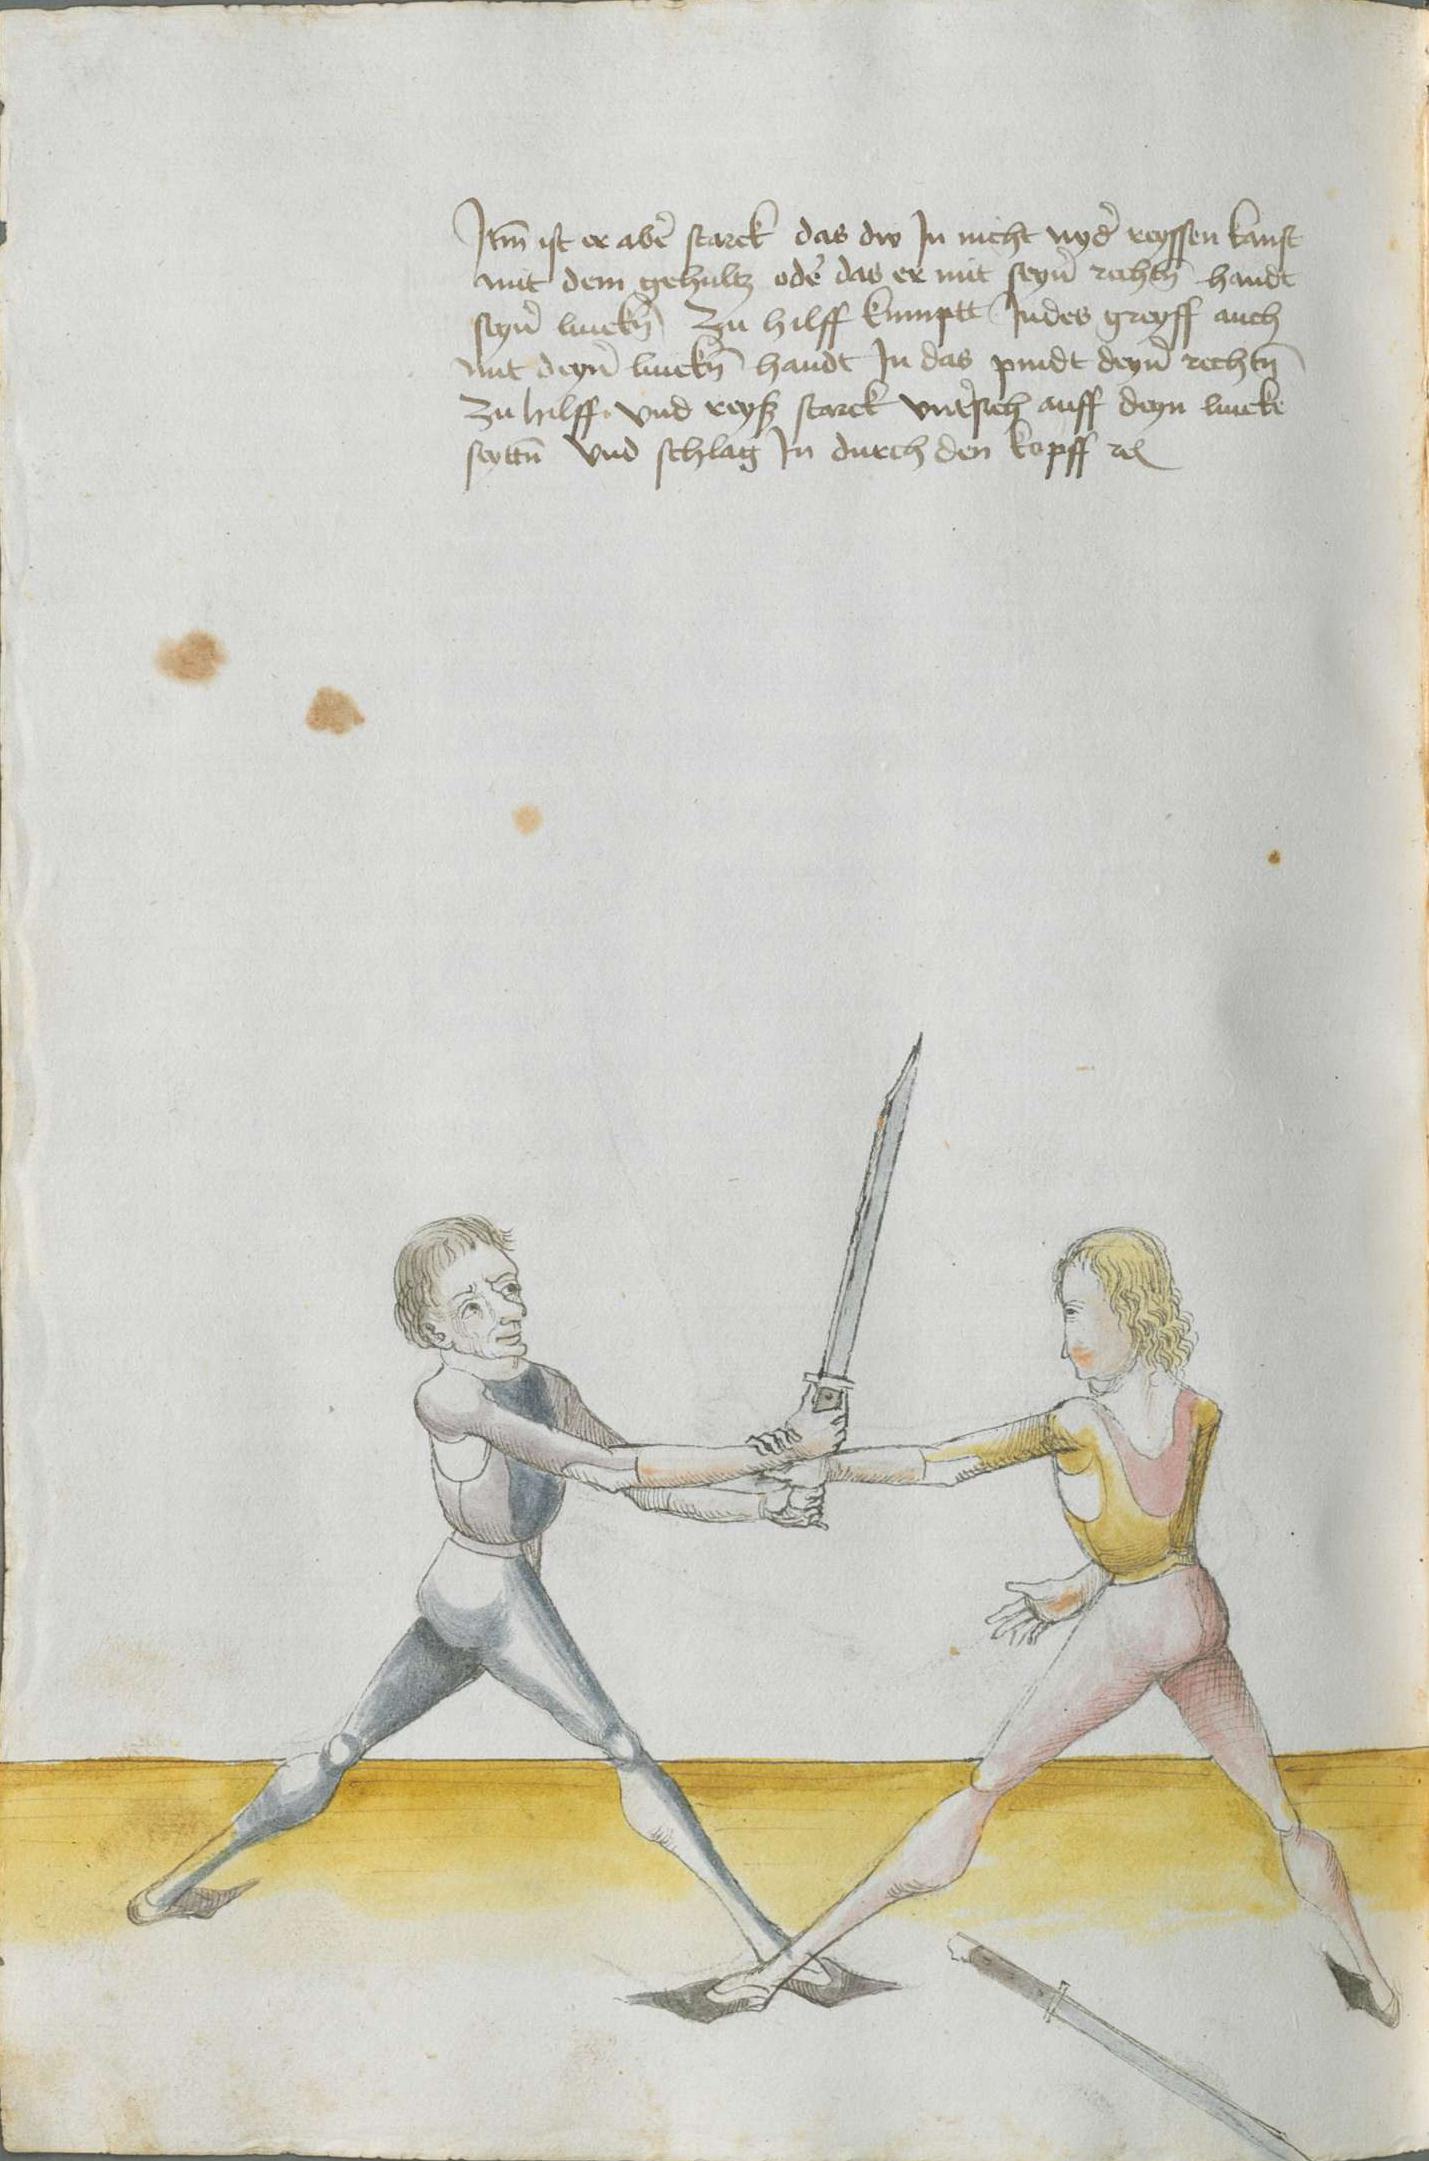 Itm̄ ist er abe᷑ starck das dw In nicht nyd᷑ reyssen kanst
mit dem gehultz ode᷑ das er mit seyn᷑ rechtn̄ handt
seyn᷑ linckn̄ Zu hilff kumptt Indes greyff auch
mit deyn᷑ linckn̄ handt In das pindt deyn᷑ rechtn̄
Zu hilff vnd reyß starck vnt᷑sich auff deyn lincke
seyttn̄ Vnd schlag In durch den kopff ꝛc